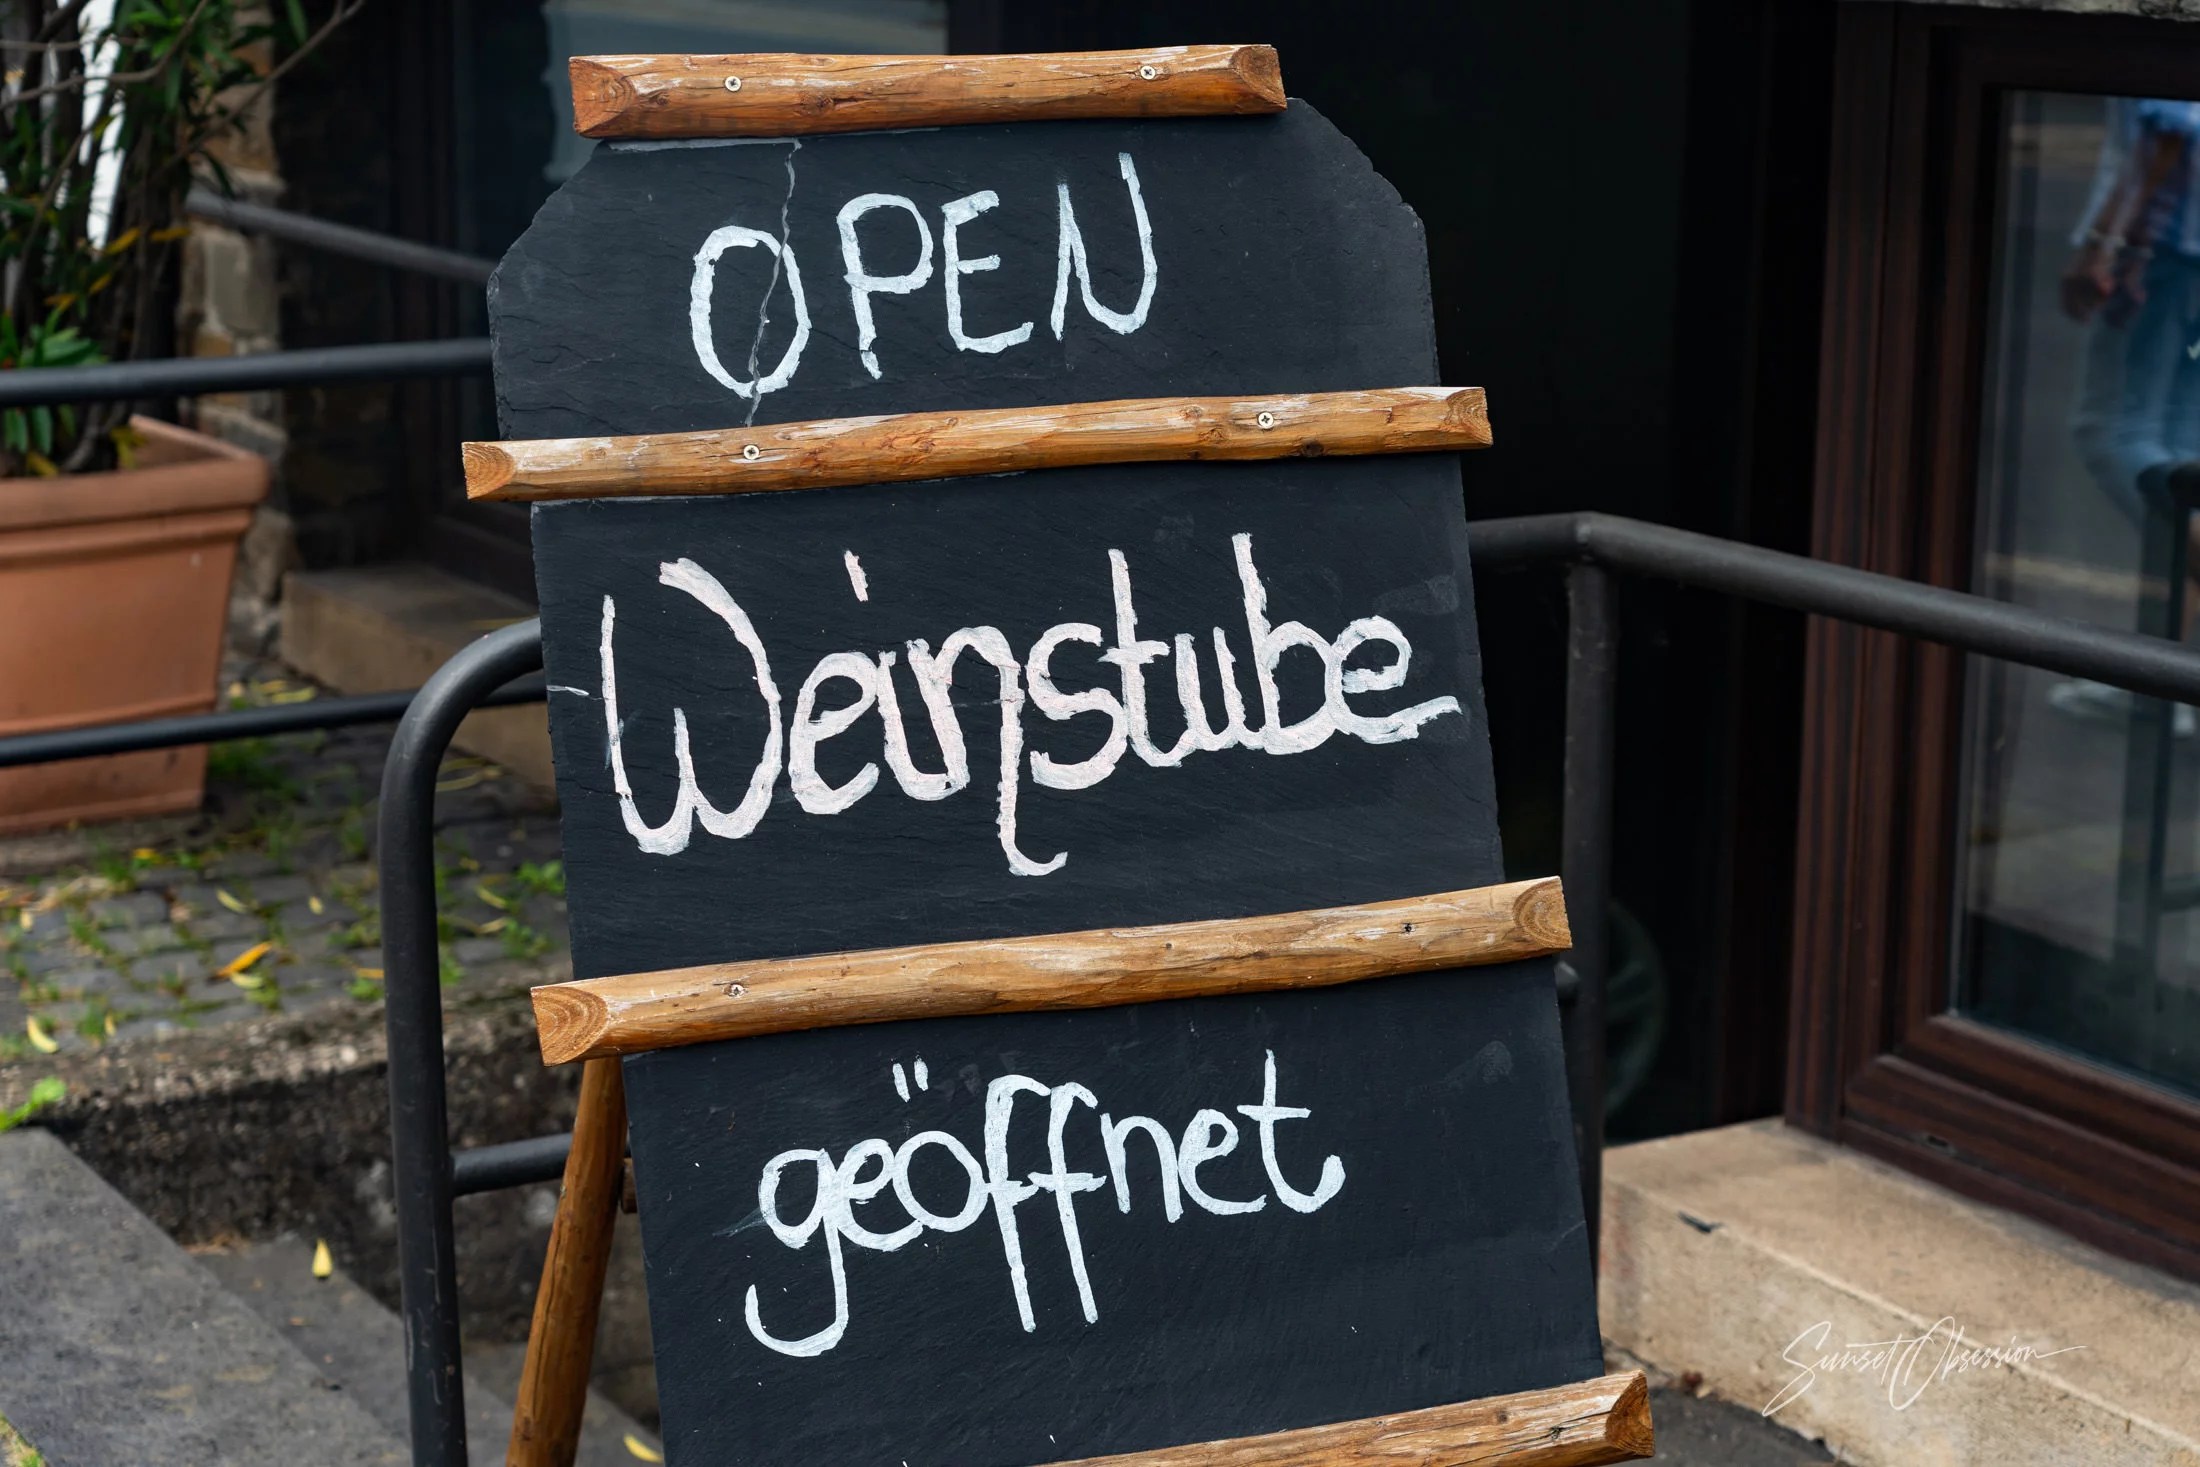 OPEN
Weinstube
geöffnet
Sunset Obsession